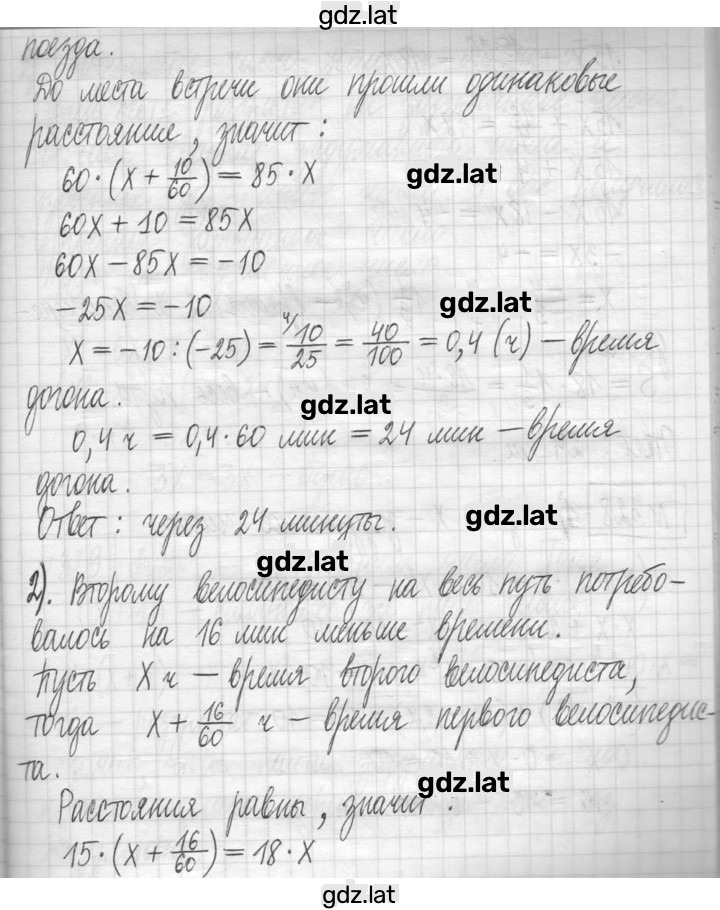 gdz.lat
поезда.
До места встречи они прошли одинаковые
расстояние, значит:
60·(x + 10/60) = 85·x
gdz.lat
60x + 10 = 85x
60x – 85x = –10
–25x = –10
gdz.lat
x = –10 : (–25) = 4/ 10/25 = 40/100 = 0,4 (ч) – время
догона.
gdz.lat
0,4 ч = 0,4·60 мин = 24 мин – время
догона.
Ответ: через 24 минуты.
gdz.lat
gdz.lat
2). Второму велосипедисту на весь путь потребо-
валось на 16 мин меньше времени.
Пусть x ч – время второго велосипедиста,
тогда x + 16/60 ч – время первого велосипедис-
та.
gdz.lat
Расстояния равны, значит:
15·(x + 16/60) = 18·x
gdz.lat